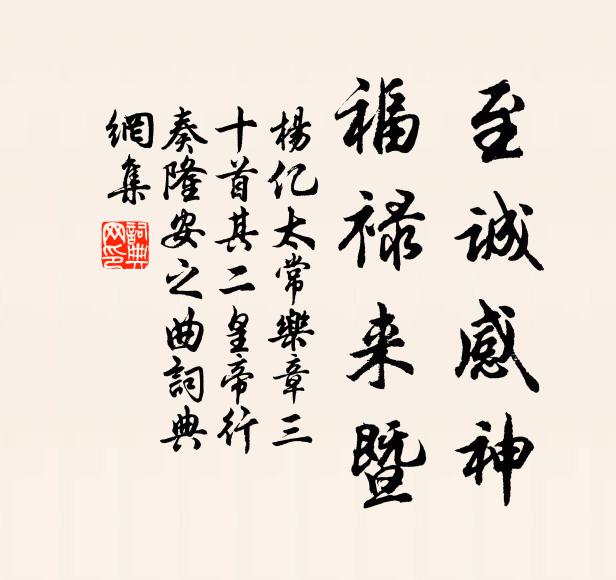 至誠感神
福禄来暨
楊亿太常樂章三
十首其二皇帝行
奏隆安之曲詞典
網集
詞典
网印